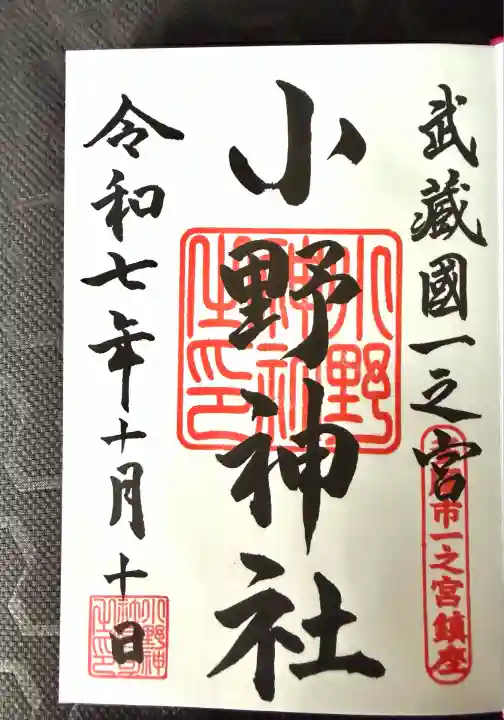 武蔵國一之宮
市一之宮鎮座
小野神社
小野
神社
之印
令和七年十月十日
小野神
社
之印